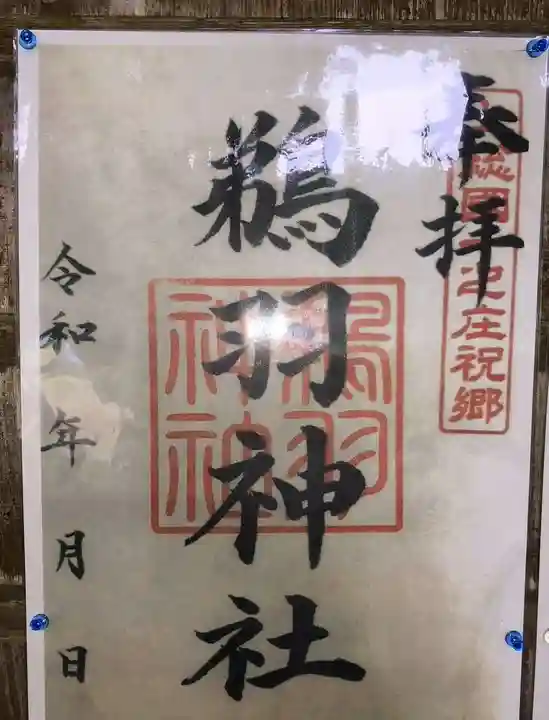 奉拝
総國 之庄祝郷
鵜羽神社
鵜羽神社
令和 年 月 日